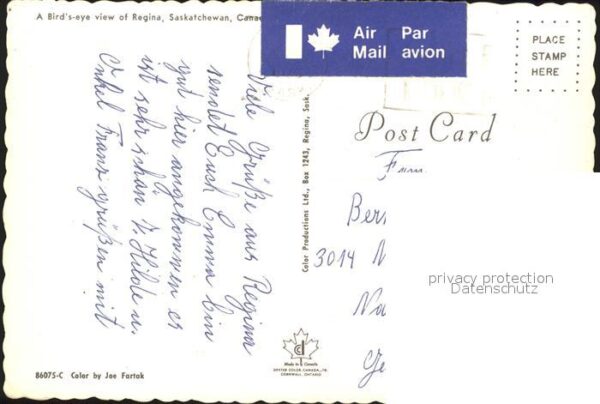 A Bird's-eye view of Regina, Saskatchewan, Canada
Air Mail
Par avion
PLACE
STAMP
HERE
Viele Grüße aus Regina
sendet Euch Emma bin
gut hier angekommen es
ist sehr schön
Hilde u.
Onkel Franz grüßen mit
Color Productions Ltd., Box 1243, Regina, Sask.
Post Card
Fam.
Ber
3014
Na
Ge
privacy protection
Datenschutz
Made in Canada
DEXTER COLOR CANADA, LTD.
CORNWALL, ONTARIO
86075-C Color by Joe Fartak